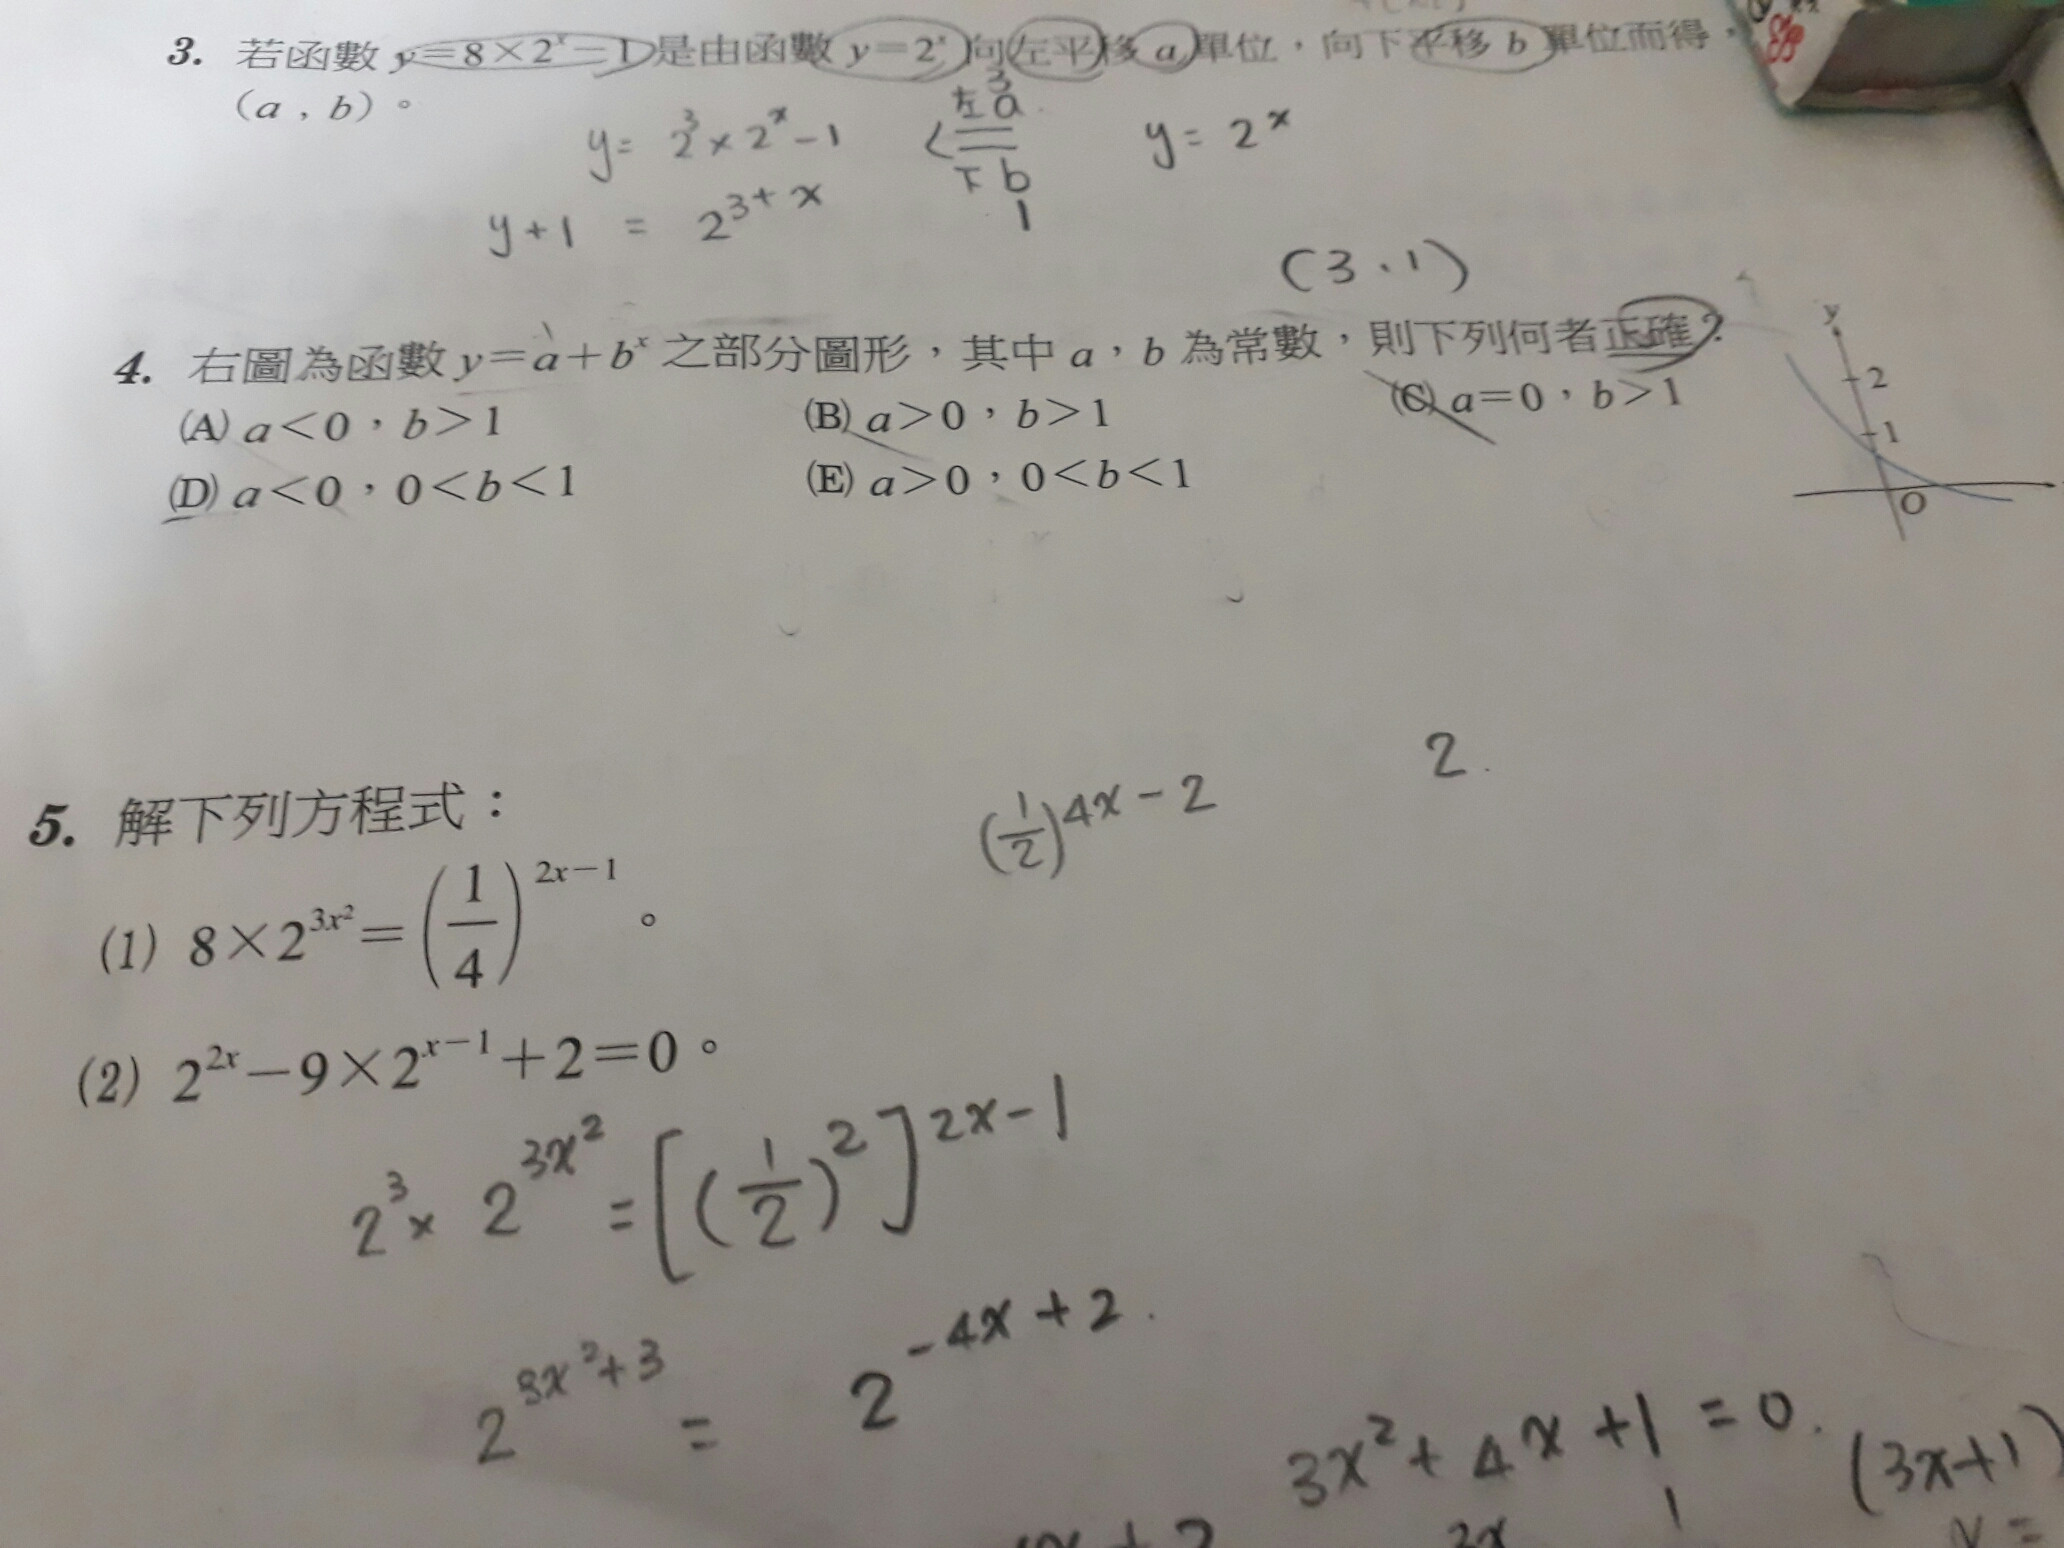 3. 若函數 y=8×2^x−1 是由函數 y=2^x 向左平移 a 單位，向下平移 b 單位而得，
(a，b)。
y= 2^3×2^x−1 左 3 a 下 b 1 y=2^x
y+1 = 2^{3+x}
(3.1)
4. 右圖為函數 y=a+b^x 之部分圖形，其中 a，b 為常數，則下列何者正確？
(A) a<0，b>1 (B) a>0，b>1 (C) a=0，b>1
(D) a<0，0<b<1 (E) a>0，0<b<1
y
2
1
O
5. 解下列方程式：
(1/2)^{4x−2} 2.
(1) 8×2^{3x²}=(1/4)^{2x−1}。
(2) 2^{2x}−9×2^{x−1}+2=0。
2^3× 2^{3x²} =[(1/2)^2]^{2x−1}
2^{3x²+3} = 2^{−4x+2}.
3x²+4x+1=0. (3x+1)